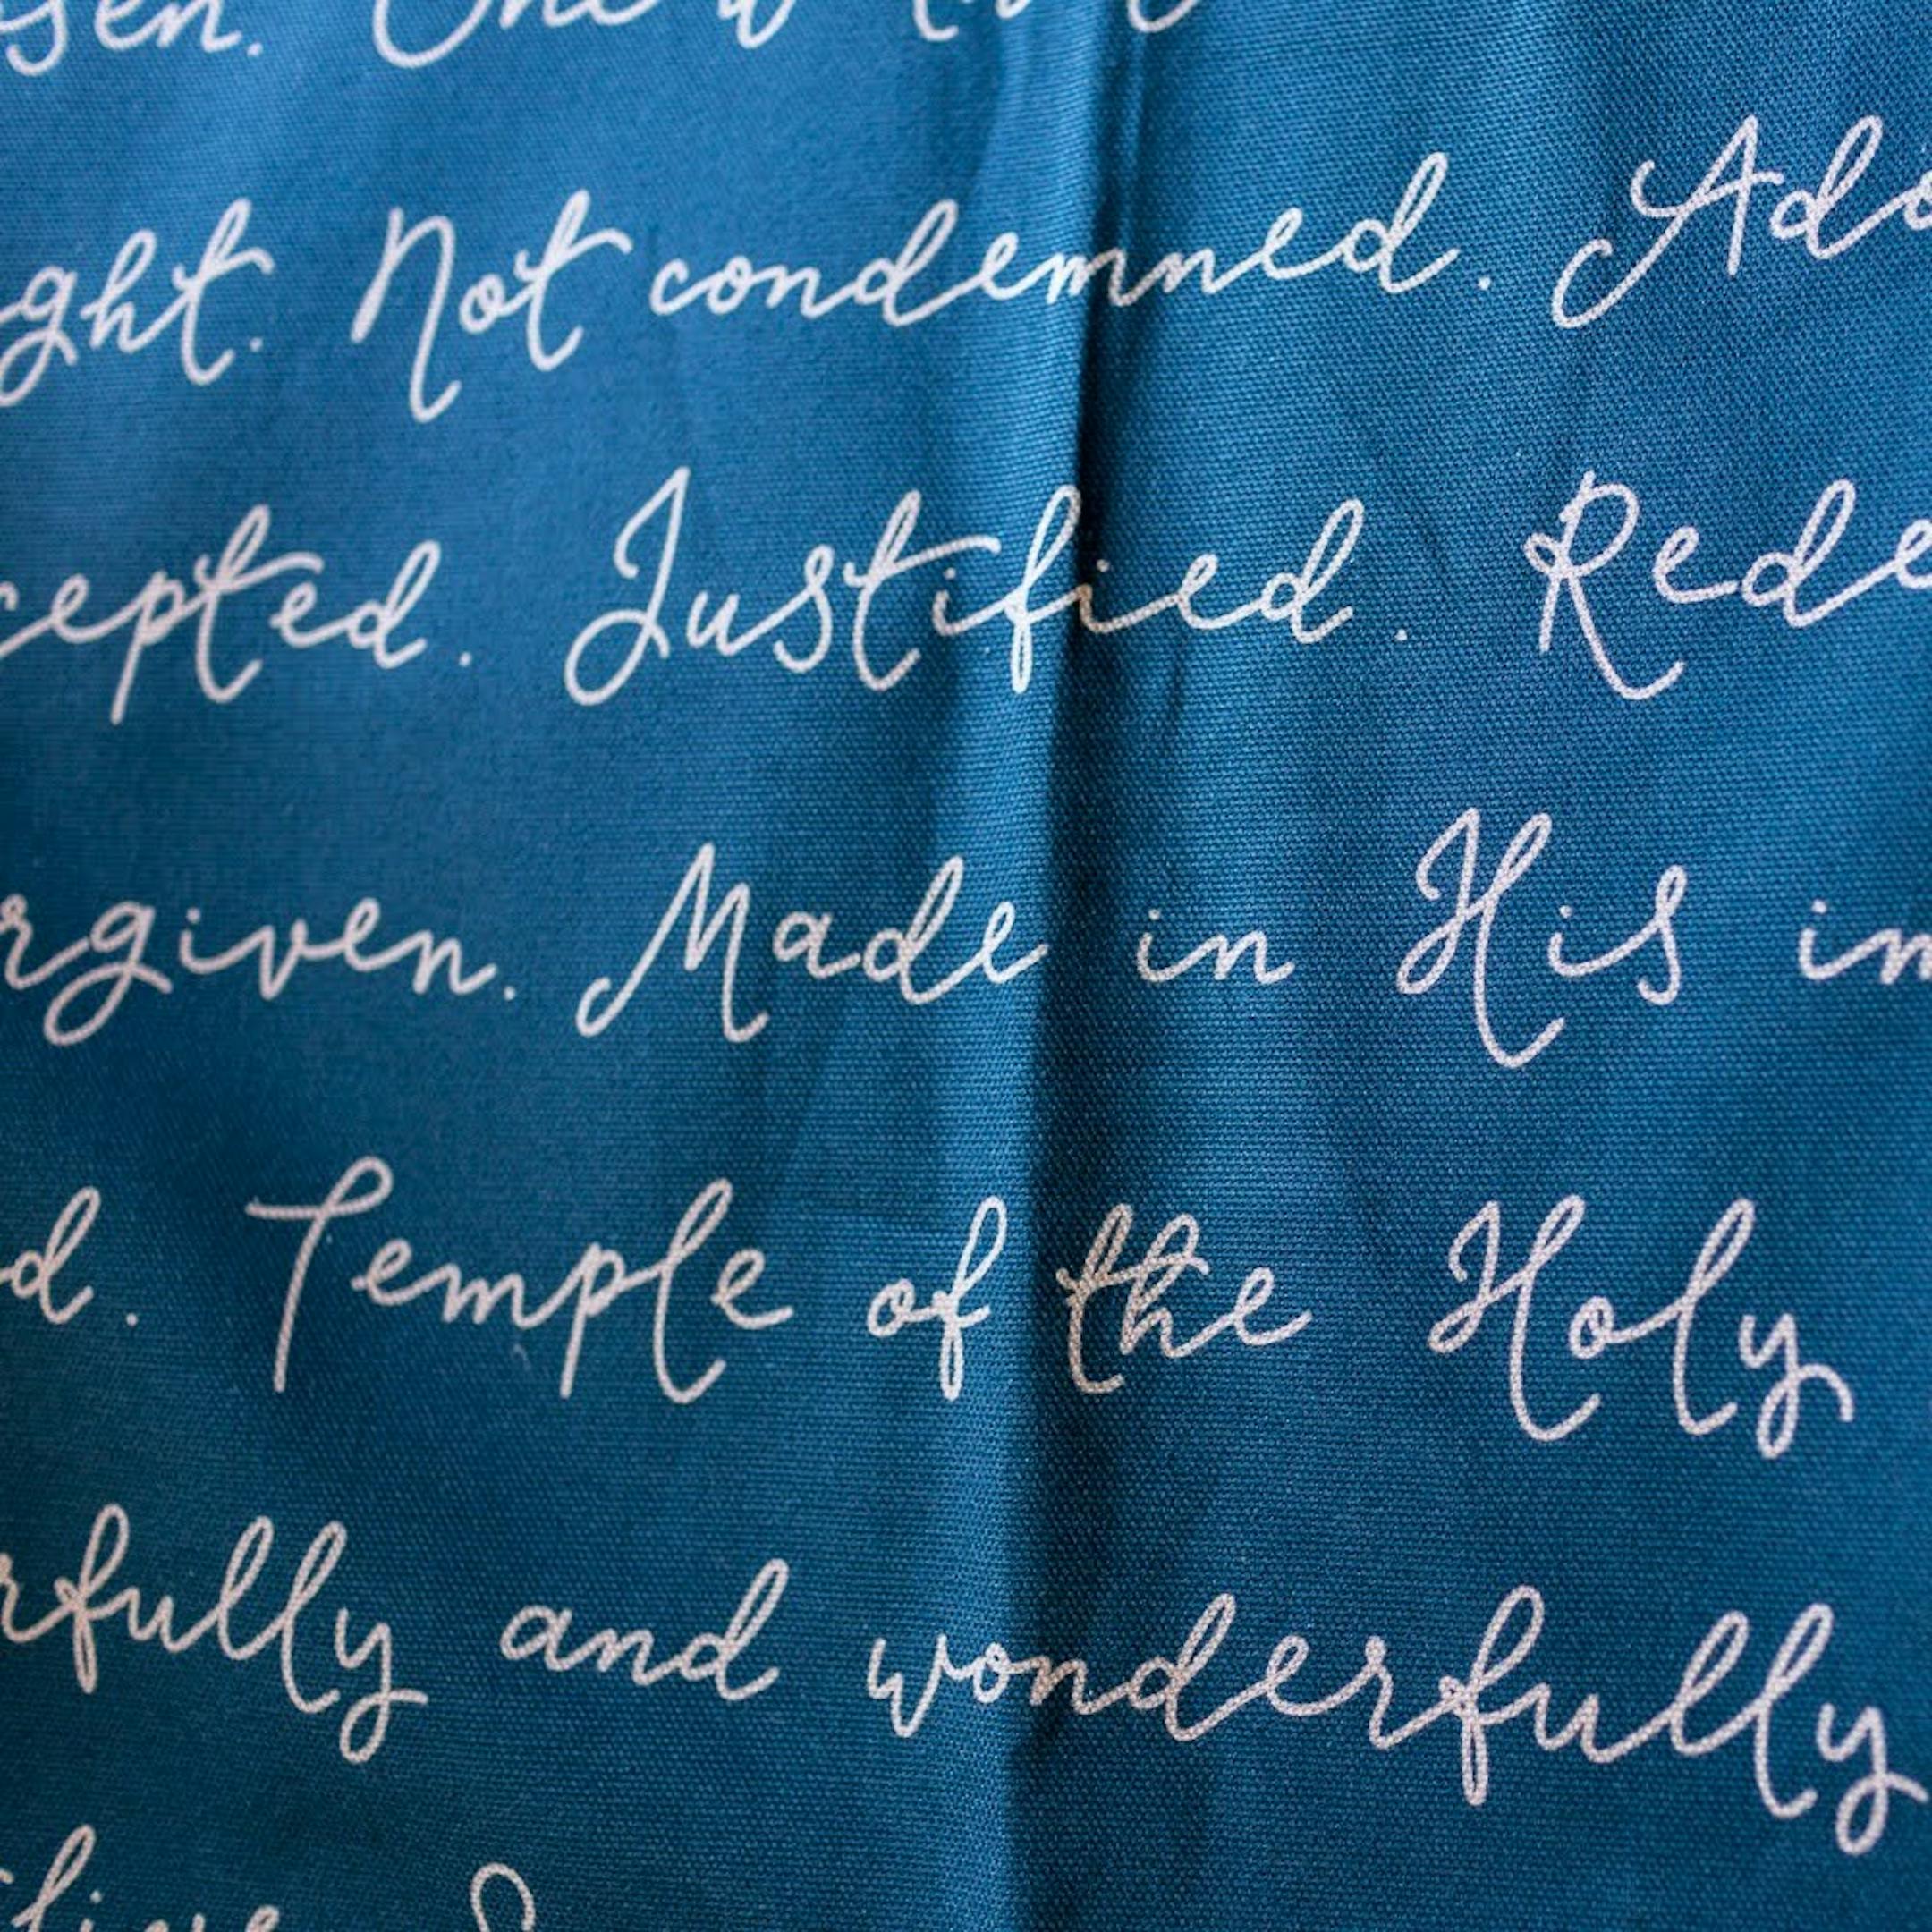 ght. Not condemned. Ado
cepted. Justified. Rede
rgiven. Made in His im
d. Temple of the Holy
rfully and wonderfully